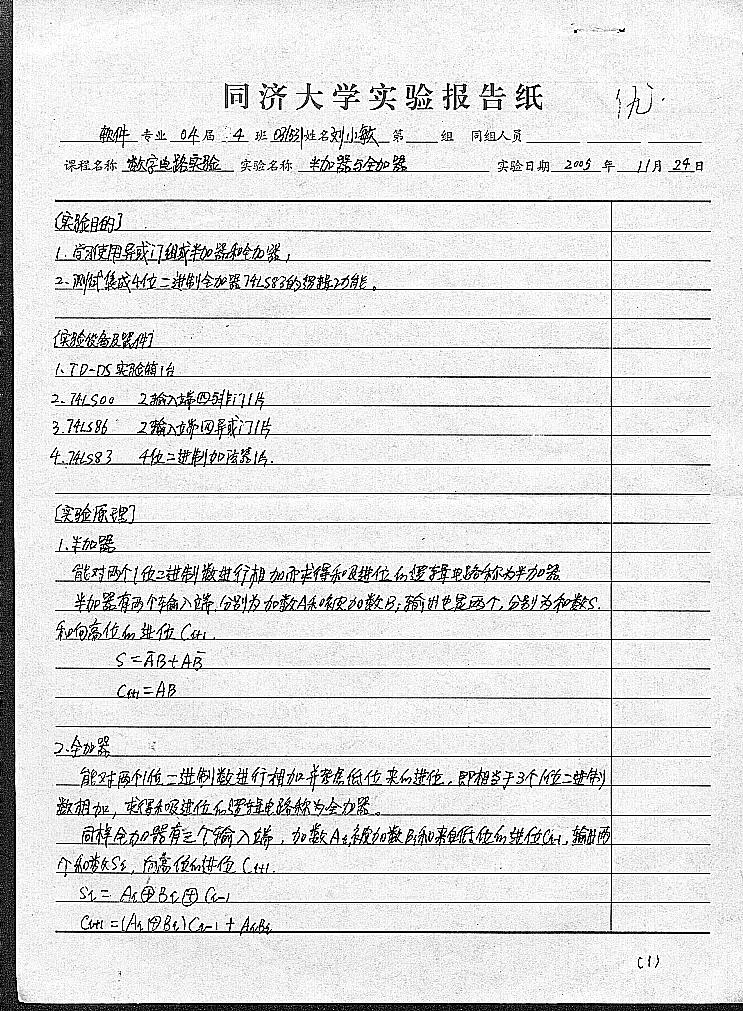 同济大学实验报告纸
(九).
软件 专业 04 届 4 班 姓名 刘小敏 第 组 同组人员
课程名称 数字电路实验 实验名称 半加器与全加器 实验日期 2005 年 11 月 24 日
[实验目的]
1. 学习使用异或门组成半加器和全加器;
2. 测试集成4位二进制全加器74LS83的逻辑功能。
[实验设备及器件]
1. TD-DS实验箱1台
2. 74LS00 2输入端四与非门1片
3. 74LS86 2输入端四异或门1片
4. 74LS83 4位二进制加法器1片.
[实验原理]
1. 半加器
能对两个1位二进制数进行相加而求得和及进位的逻辑电路称为半加器
半加器有两个输入端,分别为加数A和被加数B;输出也是两个,分别为和数S
和向高位的进位Ci+1.
S=A̅B+AB̅
Ci+1=AB
2. 全加器
能对两个1位二进制数进行相加并考虑低位来的进位,即相当于3个1位二进制
数相加,求得和及进位的逻辑电路称为全加器。
同样全加器有三个输入端,加数Ai,被加数Bi和来自低位的进位Ci-1,输出两
个和数Si,向高位的进位Ci+1.
Si=Ai⊕Bi⊕Ci-1
Ci+1=(Ai⊕Bi)Ci-1+AiBi
(1)